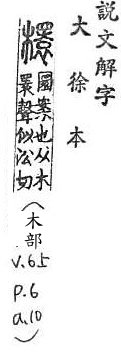 說文解字
大徐本
檈 圜案也从木
睘聲似沿切
(木部
v.65
P.6
a.10)